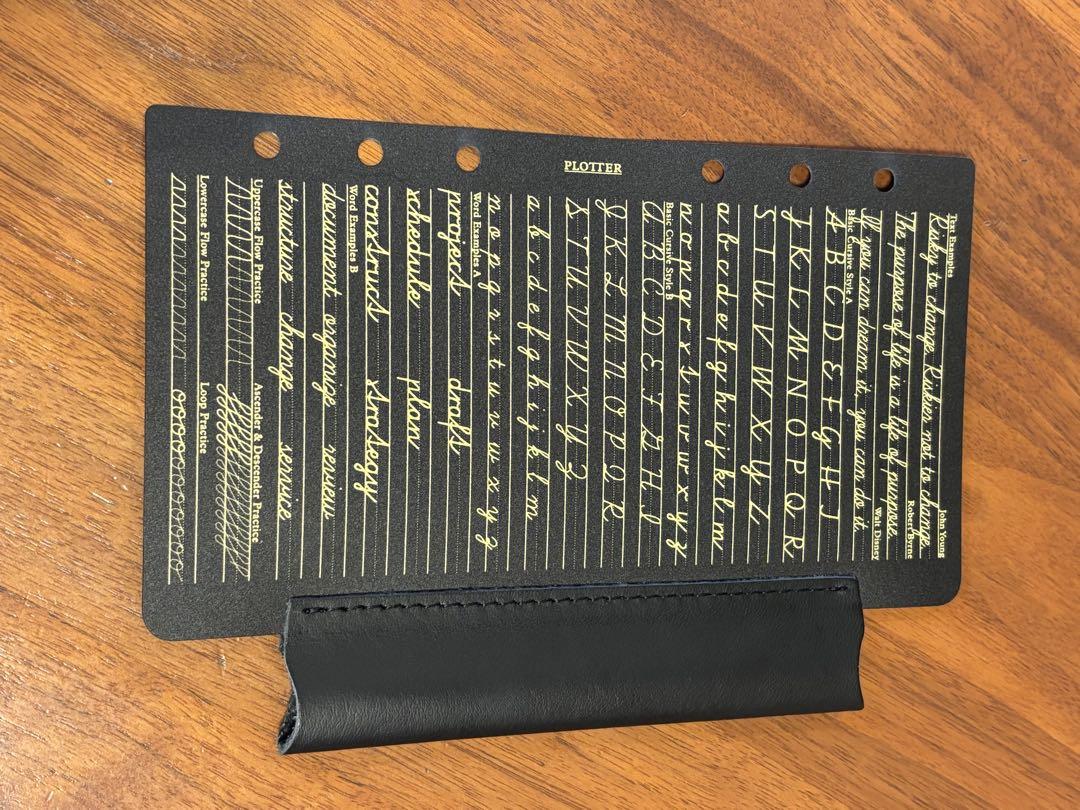 PLOTTER
Text Examples
Risky to change. Riskier not to change.
John Young
The purpose of life is a life of purpose.
Robert Byrne
If you can dream it, you can do it.
Walt Disney
Basic Cursive Style A
A B C D E F G H I
J K L M N O P Q R
S T U V W X Y Z
a b c d e f g h i j k l m
n o p q r s t u v w x y z
Basic Cursive Style B
A B C D E F G H I
J K L M N O P Q R
S T U V W X Y Z
a b c d e f g h i j k l m
n o p q r s t u v w x y z
Word Examples A
project draft
schedule plan
construct strategy
Word Examples B
document organize review
structure change service
Uppercase Flow Practice
Ascender & Descender Practice
Lowercase Flow Practice
Loop Practice